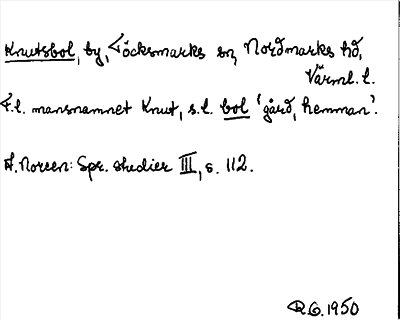 Knutsbol, by, Töcksmarks sn, Nordmarks hd,
Värml. l.
F.l. mansnamnet Knut, s.l. bol 'gård, hemman'.
A. Noreen: Spr. studier III, s. 112.
R.G. 1950